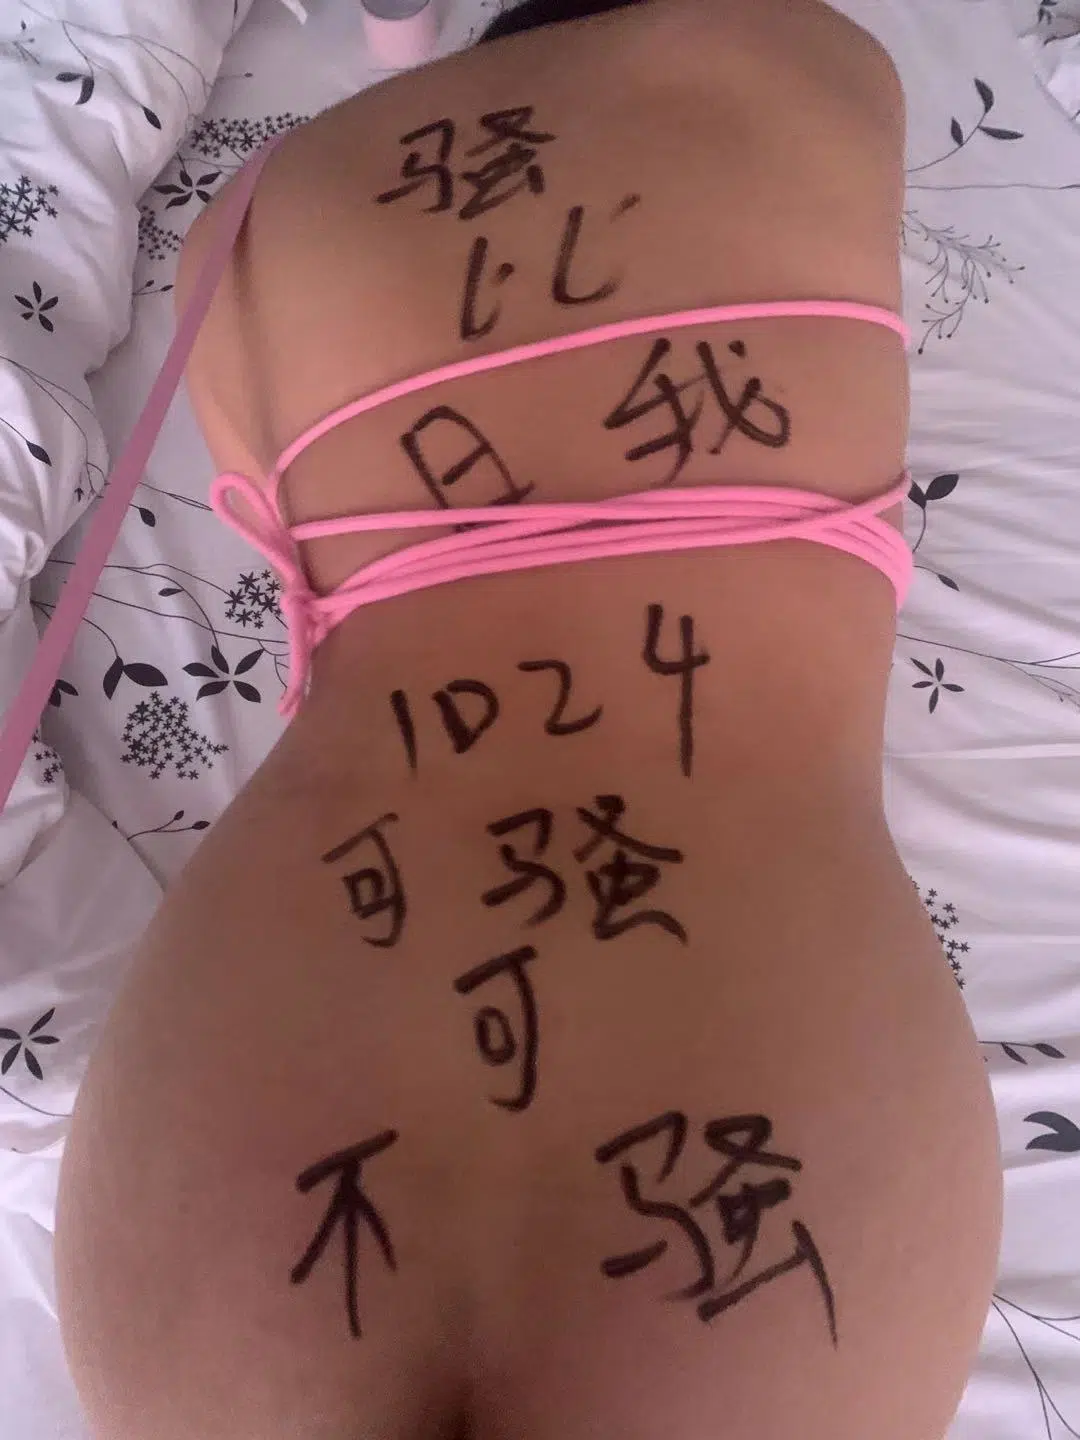 骚
比
日 我
1024
可 骚
可
不 骚